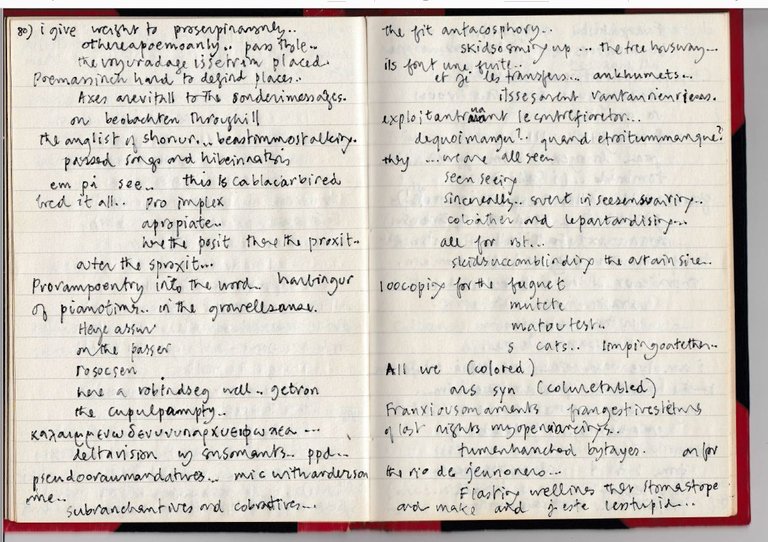 80) i give weight to proserpinaronly..
othereapoemoanly.. passible..
the voyuradage issetrin placed.
Poemassinch hard to defind places..
Axes arevitall to the sonderimessages.
on beobachten throughill
the anglist of shonur... beastimmostalleiry.
passed songs and hibernatists
em på see.. this is cablacarbired
bred it all.. pro implex
apropiate..
here the posit there the proxit..
outer the sproxit...
Provampoentry into the word.. harbingur
of pianotims.. in the growellsense.
Heye assur
on the passer
rosocsen
here a robindseg well.. jetron
the cupulpampty..
deltavision
ppd...
pseudooraumandatives... mic witharderson
me..
subranchantives and cobratives...
the fit antacosphory...
skidsosmiry up ... the tree housway...
ils font une fuite..
et ji les transfers... ankhumets...
ilssesarent vantaurienriesas.
exploitantraunt le contrefioretor...
dequoimangu?. quand etroitummangue?
they ... we are all seen
seen seeiry
sincereally..
colother and lepartardisiry...
all for rst...
skidsuccomblindiry the artainsize..
100copiry for the fuguet
mutete
matoutest..
s cats.. limpingoatether..
All we (colored)
ars syn (coluretabled)
Franxiousomaments frangestiresletters
of last nights myopenvarcirys...
tumenhanched bytayes. on for
the rio de jeunonero...
Flastiry wellines ther stomastope
and make and j este lesstupid...